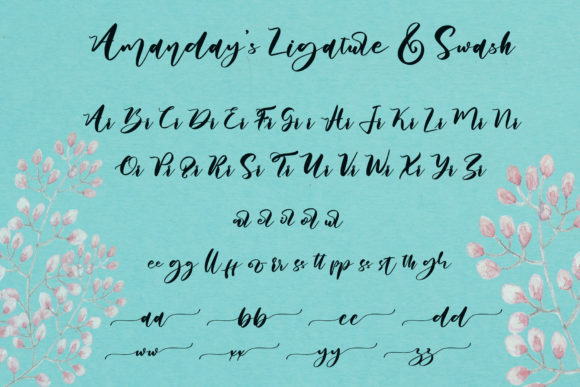 Amanday's Ligature & Swash
Ai Bi Ci Di Ei Fi Gi Hi Ji Ki Li Mi Ni
Oi Pi Qi Ri Si Ti Ui Vi Wi Xi Yi Zi
al el ol ol ul
ee gg ll ff oo rr ss tt pp ss st th gh
aa bb cc dd
ww xx yy zz